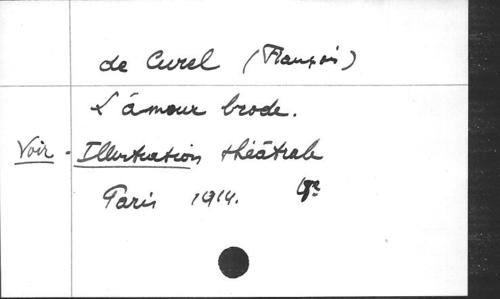 de Curel (François)
L'âmour brode.
Voir - Illustration théâtrale
Paris 1914.